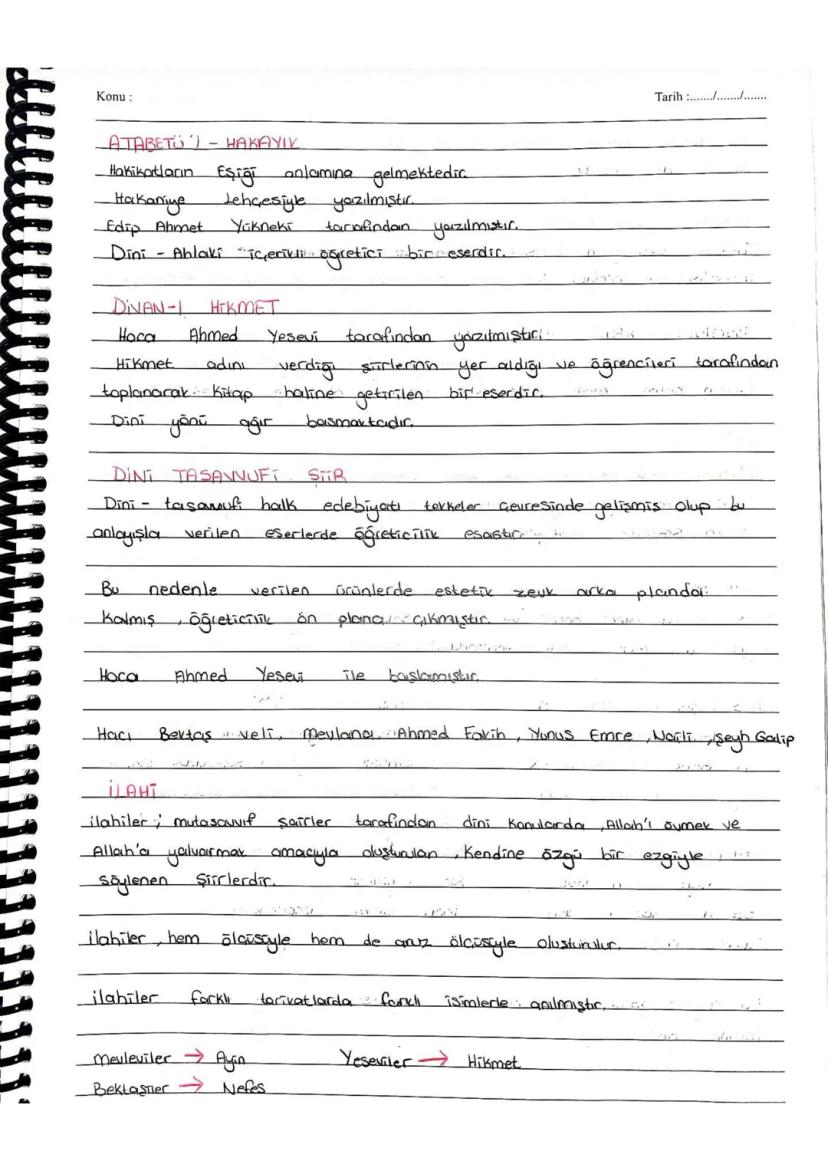 Konu :
Tarih :......./......./.......
ATABETÜ'L - HAKAYIK
Hakikatların Eşiği anlamına gelmektedir.
Hakaniye Lehçesiyle yazılmıştır.
Edip Ahmet Yükneki tarafından yazılmıştır.
Dini - Ahlaki içerikli öğretici bir eserdir.
DİVAN-I HİKMET
Hoca Ahmed Yesevi tarafından yazılmıştır.
Hikmet adını verdiği şiirlerinin yer aldığı ve öğrencileri tarafından
toplanarak kitap haline getirilen bir eserdir.
Dini yönü ağır basmaktadır.
DİNİ TASAVVUFİ ŞİİR
Dini - tasavvufi halk edebiyatı tekkeler çevresinde gelişmiş olup bu
anlayışla verilen eserlerde öğreticilik esastır.
Bu nedenle verilen ürünlerde estetik zevk arka planda
kalmış, öğreticilik ön plana çıkmıştır.
Hoca Ahmed Yesevi ile başlamıştır.
Hacı Bektaş veli, Mevlana, Ahmed Fakih, Yunus Emre, Naili, Şeyh Galip
İLAHİ
ilahiler ; mutasavvıf şairler tarafından dini konularda, Allah'ı övmek ve
Allah'a yalvarmak amacıyla oluşturulan, kendine özgü bir ezgiyle
söylenen şiirlerdir.
ilahiler, hem ölçüsüyle hem de aruz ölçüsüyle oluşturulur.
ilahiler farklı tarikatlarda farklı isimlerle anılmıştır.
Mevleviler → Ayin Yeseviler → Hikmet
Bektaşiler → Nefes